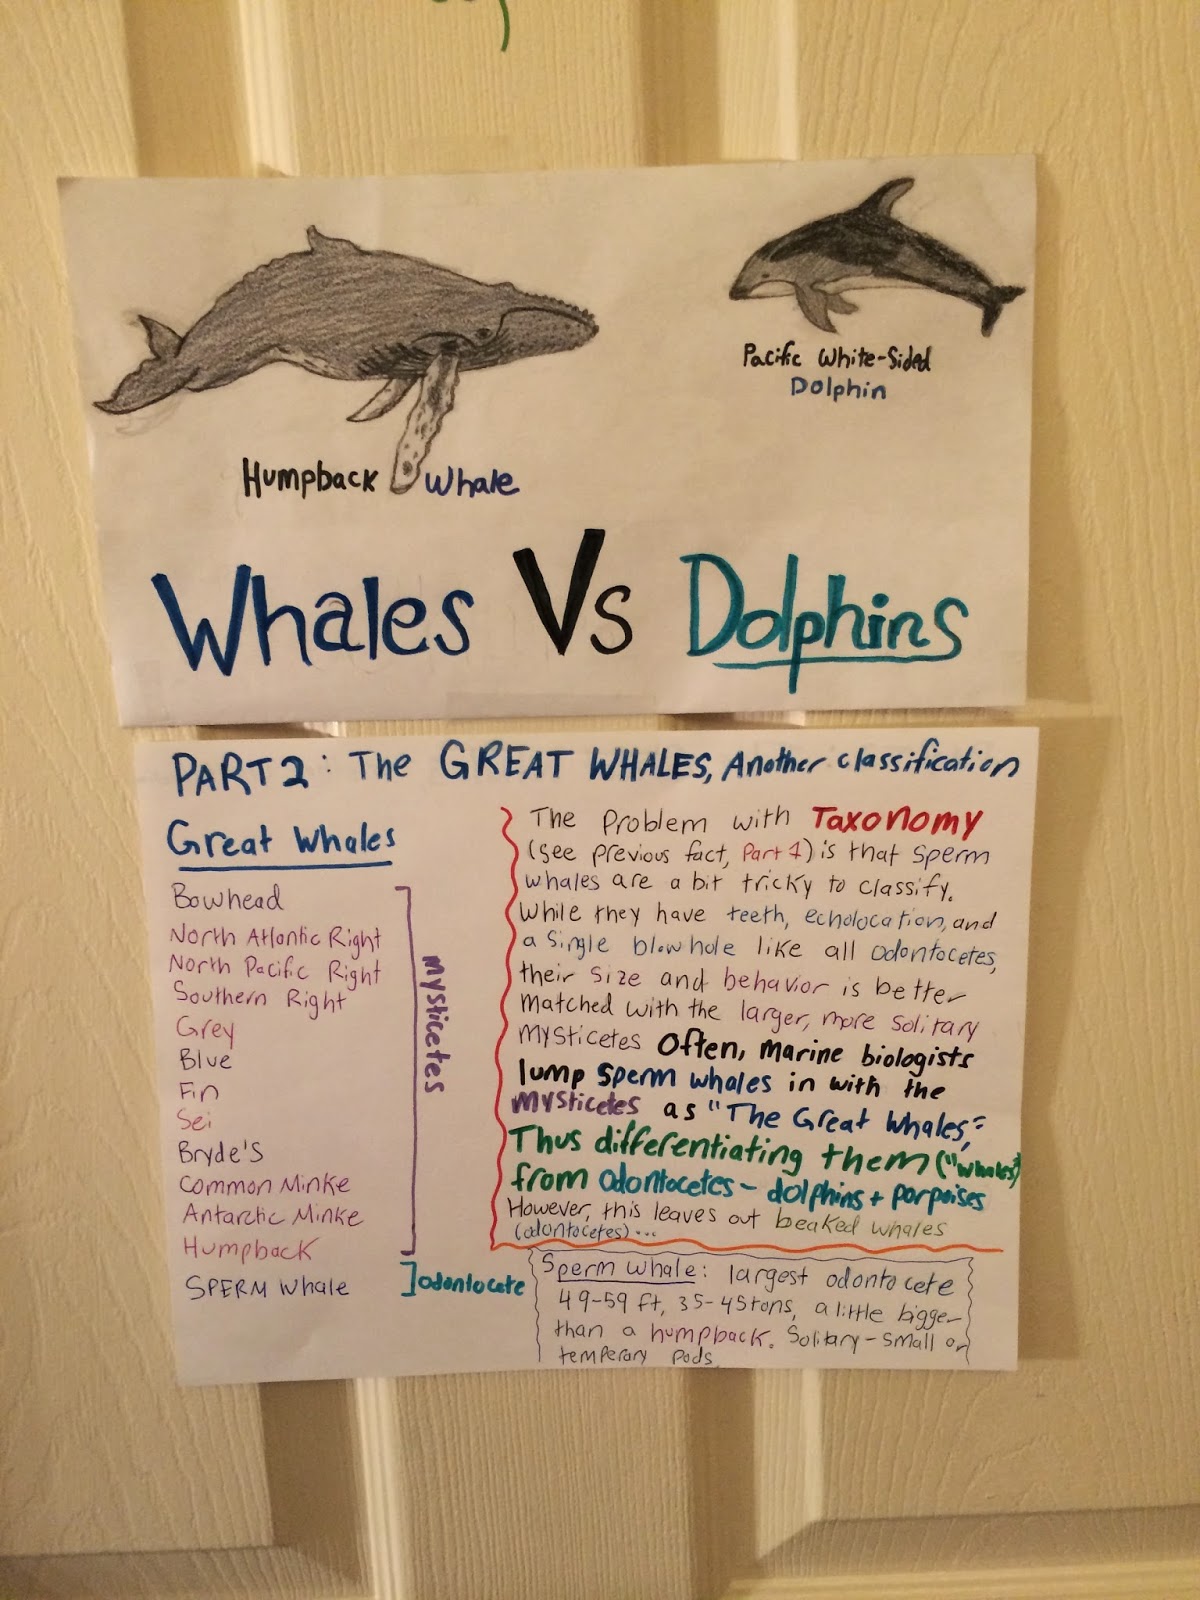 Pacific White-Sided
Dolphin
Humpback Whale
Whales Vs Dolphins
PART 2: The GREAT WHALES, Another classification
Great Whales
Bowhead
North Atlantic Right
North Pacific Right
Southern Right
Grey
Blue
Fin
Sei
Bryde's
Common Minke
Antarctic Minke
Humpback
mysticetes
SPERM Whale
odontocete
The Problem with Taxonomy
(see previous fact, Part 1) is that sperm
whales are a bit tricky to classify.
While they have teeth, echolocation, and
a single blowhole like all odontocetes,
their size and behavior is better
matched with the larger, more solitary
mysticetes Often, marine biologists
lump sperm whales in with the
mysticetes as "The Great Whales,"
Thus differentiating them ("whales")
from odontocetes - dolphins + porpoises
However, this leaves out beaked whales
(odontocetes)...
Sperm whale: largest odontocete
49-59 ft, 35-45 tons, a little bigger
than a humpback. Solitary - small or
temperary pods